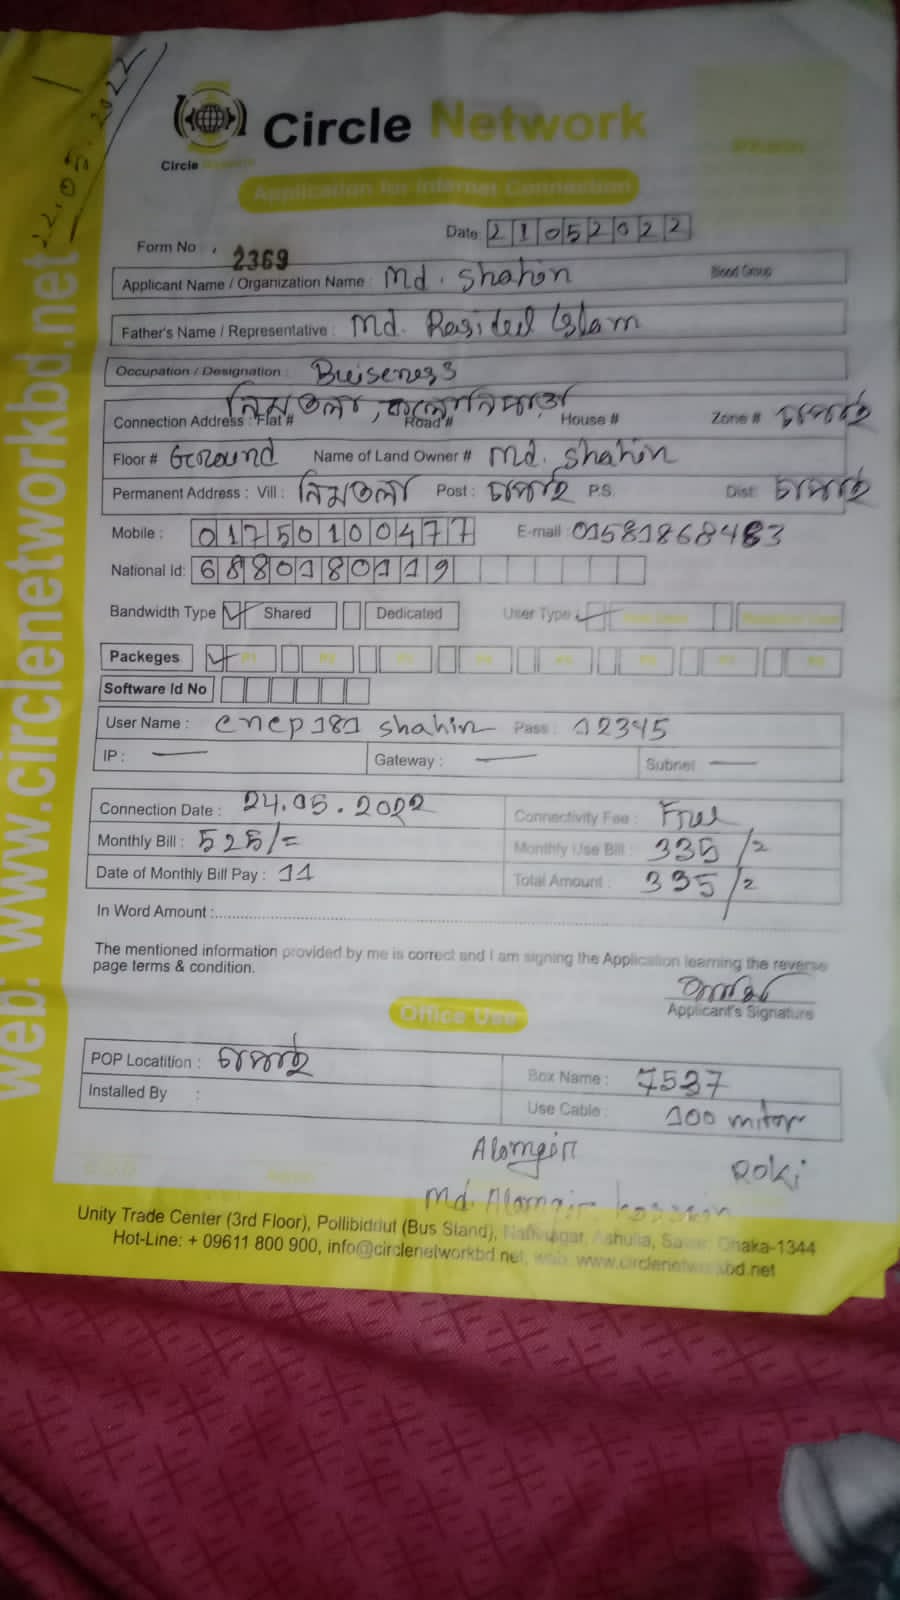 22.05.2022
Circle Network
Circle
Application for Internet Connection
Date: 21052022
Form No : 2369
Applicant Name / Organization Name : Md. Shahin Blood Group
Father's Name / Representative : Md. Rasidul Islam
Occupation / Designation : Buiseness
Connection Address : Flat # নিমতলা, কলোনিপাড়া Road # House # Zone #
Floor # Ground Name of Land Owner # Md. Shahin
Permanent Address : Vill : নিমতলা Post : P.S. Dist:
Mobile : 01750100477 E-mail : 01581868483
National Id: 6880180119
Bandwidth Type Shared Dedicated User Type :
Packeges P1 P2 P3 P4 P5 P6 P7 P8
Software Id No
User Name : cncp181 shahin Pass : 12345
IP : — Gateway : — Subnet —
Connection Date : 24.05.2022 Connectivity Fee : Free
Monthly Bill : 525/= Monthly Use Bill : 335/2
Date of Monthly Bill Pay : 11 Total Amount : 335/2
In Word Amount :
The mentioned information provided by me is correct and I am signing the Application learning the reverse
page terms & condition.
Applicant's Signature
Office Use
POP Locatition : Box Name : 7537
Installed By : Use Cable : 100 mitor
Alomgir Roki
Md. Alomgir hossain
Unity Trade Center (3rd Floor), Pollibidriut (Bus Stand), Nabinagar, Ashulia, Savar, Dhaka-1344
Hot-Line: + 09611 800 900, info@circlenetworkbd.net, web: www.circlenetworkbd.net
web: www.circlenetworkbd.net